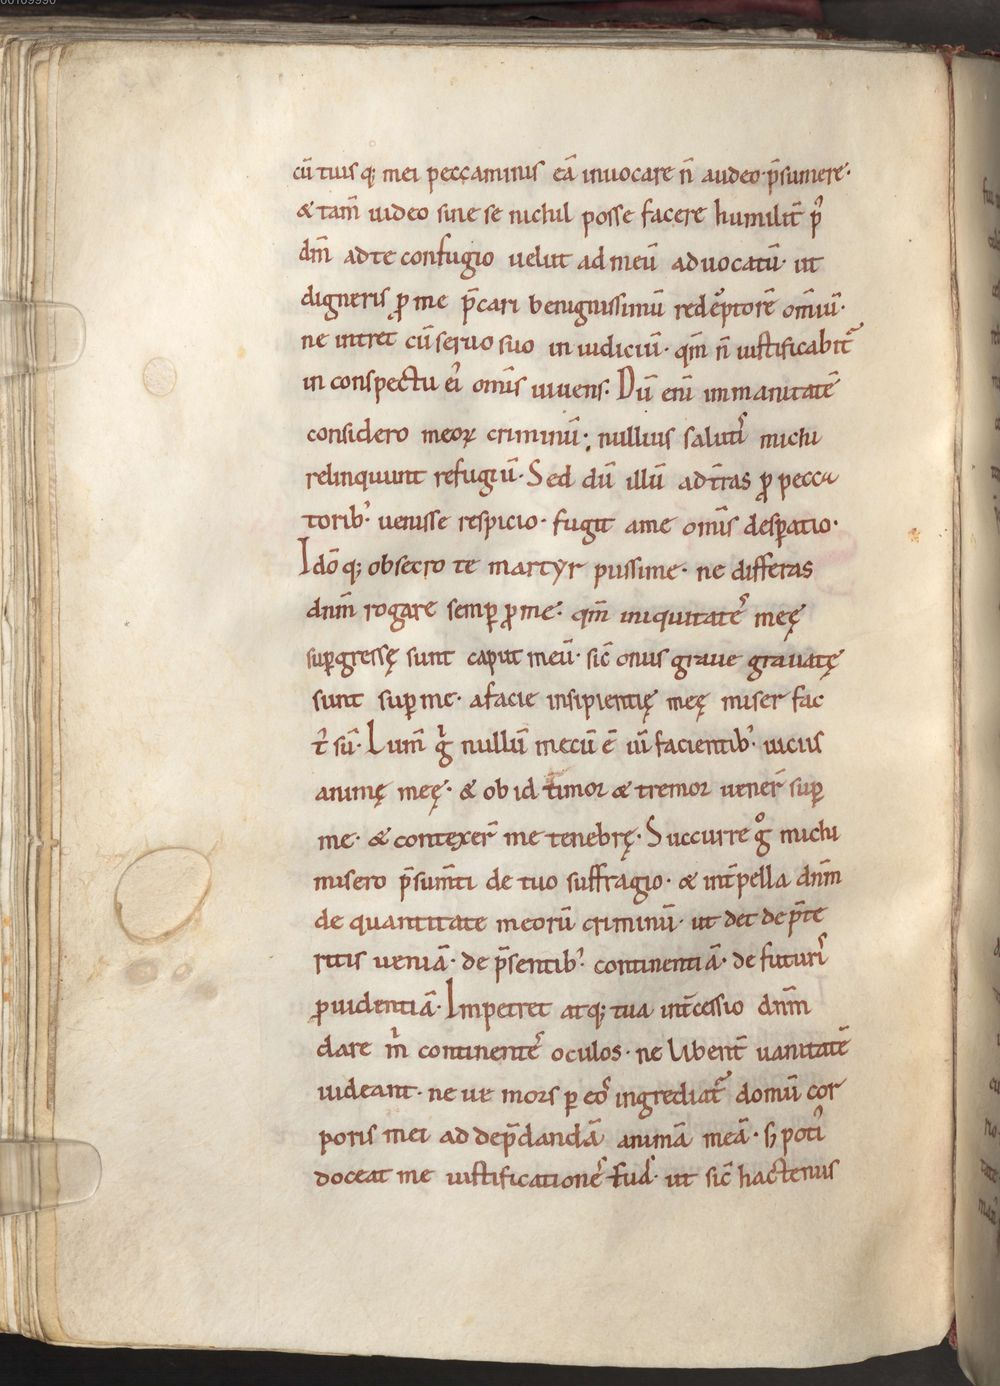 00109990
cū tuis q; mei peccaminis eā inuocare n̄ audeo p̄sumere·
& tam̄ uideo sine se nichil posse facere humilit̄ p̄
dm̄ ad te confugio uelut ad meū aduocatū· ut
digneris ꝓ me p̄cari benignissimū redēptorē om̄iū·
ne intret cū seruo suo in iudiciū· qm̄ n̄ iustificabit̄
in conspectu ei᾽ om̄is uiuens· Dū eni᷈ immanitatē
considero meoꝝ criminū· nullius saluti᷈ michi
relinquunt refugiū· Sed dū illū ad t̄ras ꝓ pecca
torib᾽ uenisse respicio· fugit a me om̄is desꝑatio·
Idō q; obsecro te martyr piissime· ne differas
dnm̄ rogare semꝑ ꝓ me· qm̄ iniquitate᷈ meę
suꝑgressę sunt caput meū· sic̄ onus graue grauatę
sunt suꝑ me· a facie insipientię meę miser fac
t᷈ sū· Lum̄ g̍ nullū mecū ē ui᷈ facientib᾽ uicus
animę meę· & ob id timor & tremor uener̄ suꝑ
me· & contexer̄ me tenebrę· Succurre gͦ michi
misero p̄sum̄ti de tuo suffragio· & int̄pella dnm̄
de quantitate meorū criminū· ut det de p̄te
ritis ueniā· de p̄sentib᾽ continentiā· de futuri᷈
ꝓuidentiā· Impetret atq; tua int̄cessio dnm̄
dare m̍ continente᷈ oculos· ne libent̄ uanitatē
uideant· ne ue mors ꝑ eo᷈ ingrediat̄ domū cor
poris mei ad dep̄dandā animā meā· ꞩ poti᾽
doceat me iustificatione᷈ suas· ut sic̄ hactenus